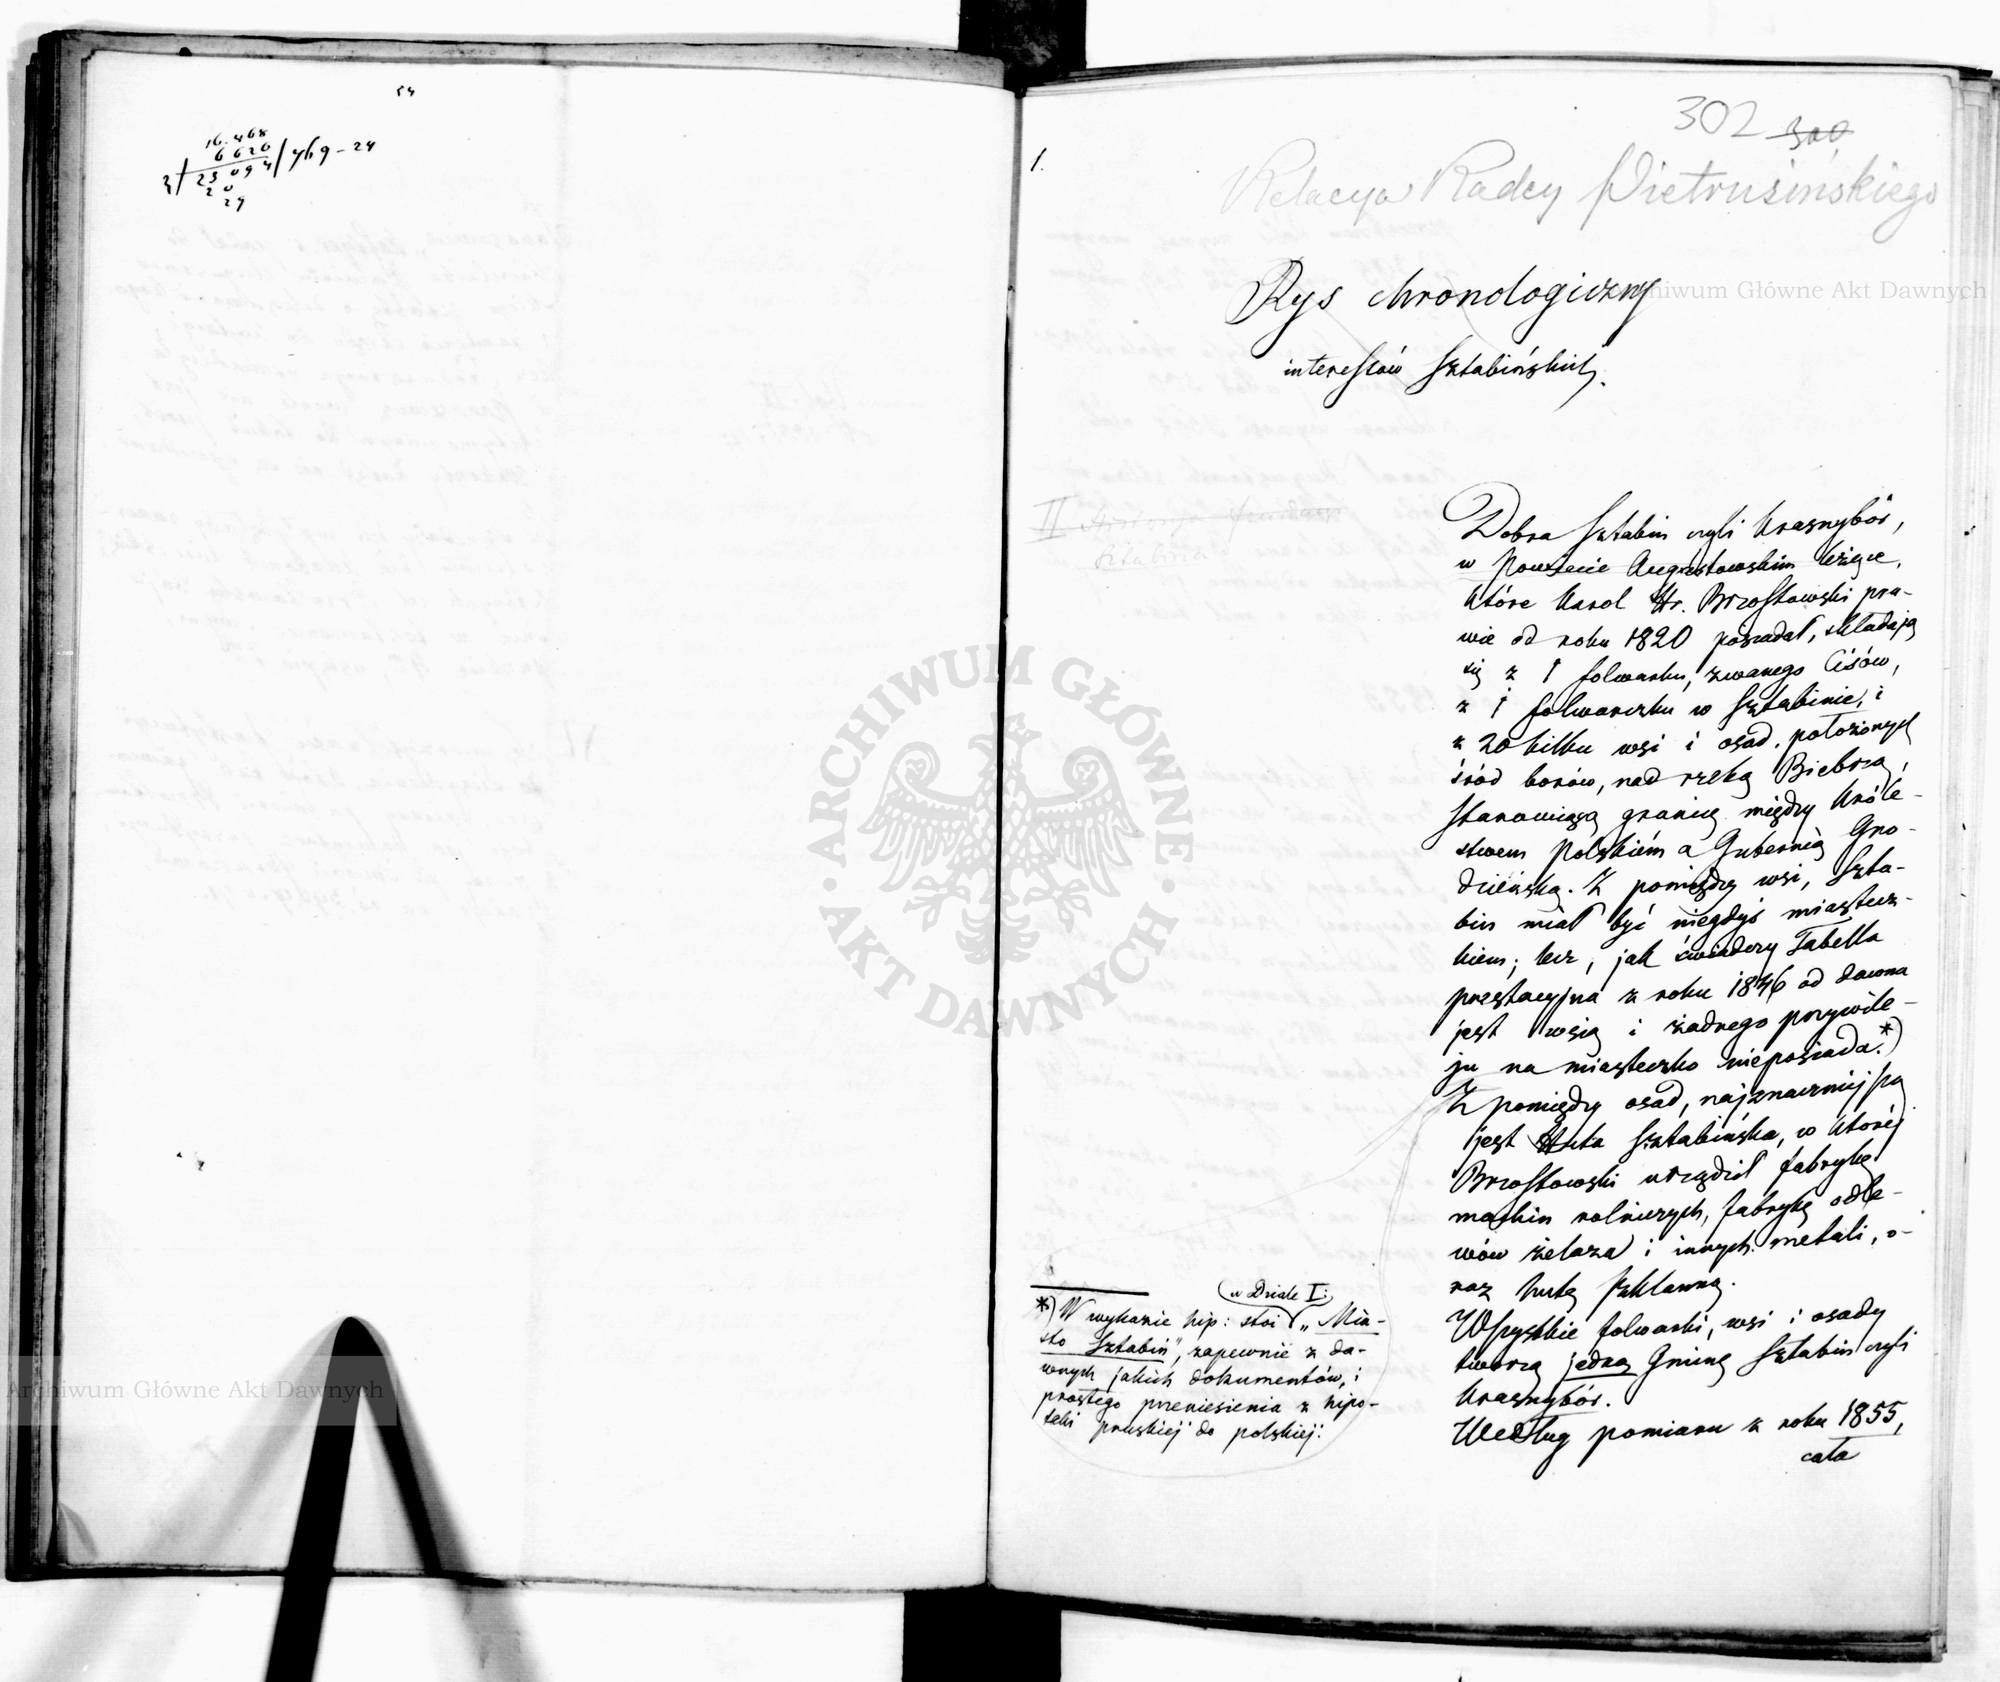 54
16.468
6 626
23 094 | 769-24
20
29
302 300
1.
Relacya Radcy Pietrusińskiego
Rys chronologiczny
interessów Sztabińskich.
II Historya fundacyi
Sztabina
Dobra Sztabin czyli Krasnybór,
w Powiecie Augustowskim leżące,
które Karol Hr. Brzostowski pra-
wie od roku 1820 posiadał, składają
się z 1 folwarku, zwanego Cisów,
z 1 folwarczku w Sztabinie, i
z 20 kilku wsi i osad, położonych
śród borów, nad rzeką Biebrzą,
stanowiącą granicę między Króle-
stwem Polskiém a Gubernią Gro-
dzieńską. Z pomiędzy wsi, Szta-
bin miał być niegdyś miastecz-
kiem; lecz, jak świadczy Tabella
prestacyjna z roku 1846 od dawna
jest wsią i żadnego przywile-
ju na miasteczko nieposiada.*)
Z pomiędzy osad, najznaczniejszą
jest Huta Sztabińska, w której
Brzostowski urządził fabrykę
machin rolniczych, fabrykę odle-
wów żelaza i innych metali, o-
raz hutę szklanną.
Wszystkie folwarki, wsi i osady
tworzą jedną Gminę Sztabin czyli
Krasnybór.
Według pomiaru z roku 1855,
cała
*) W wykazie hip: stoi (w Dziale I:) „Mia-
sto Sztabin", zapewnie z da-
wnych jakich dokumentów, i
prostego przeniesienia z hipo-
teki pruskiej do polskiej.
Archiwum Główne Akt Dawnych
Archiwum Główne Akt Dawnych
ARCHIWUM GŁÓWNE · AKT DAWNYCH ·